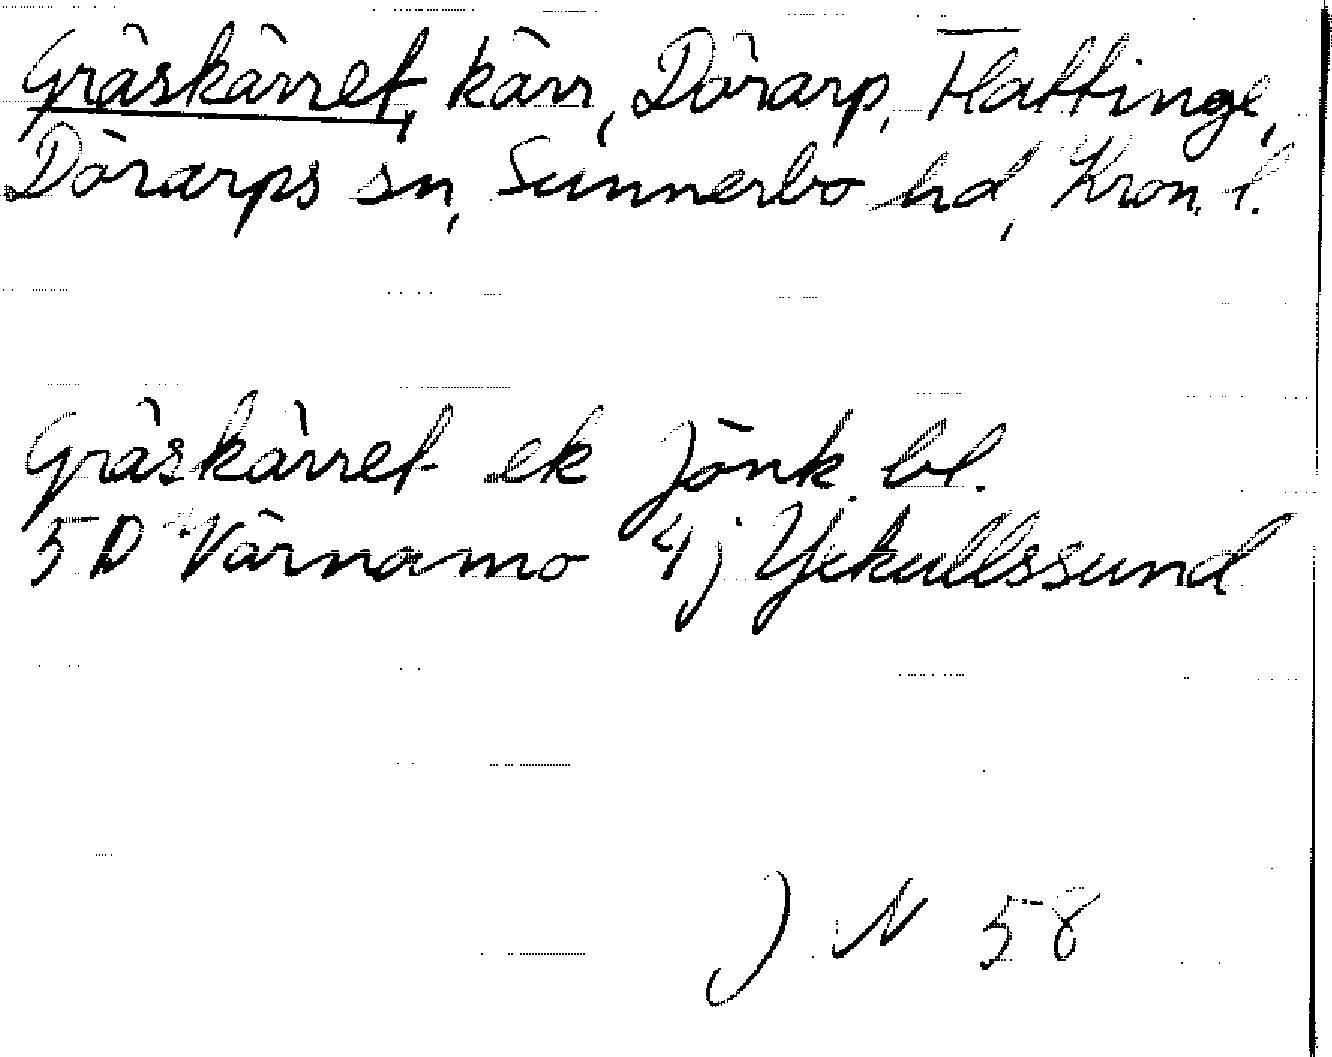 Gräskärret, kärr, Dörarp, Flattinge,
Dörarps sn, Sunnerbo hd, Kron. l.
Gräskärret ek Jönk. bl.
5D Värnamo 4j Yxkullssund
J N 58